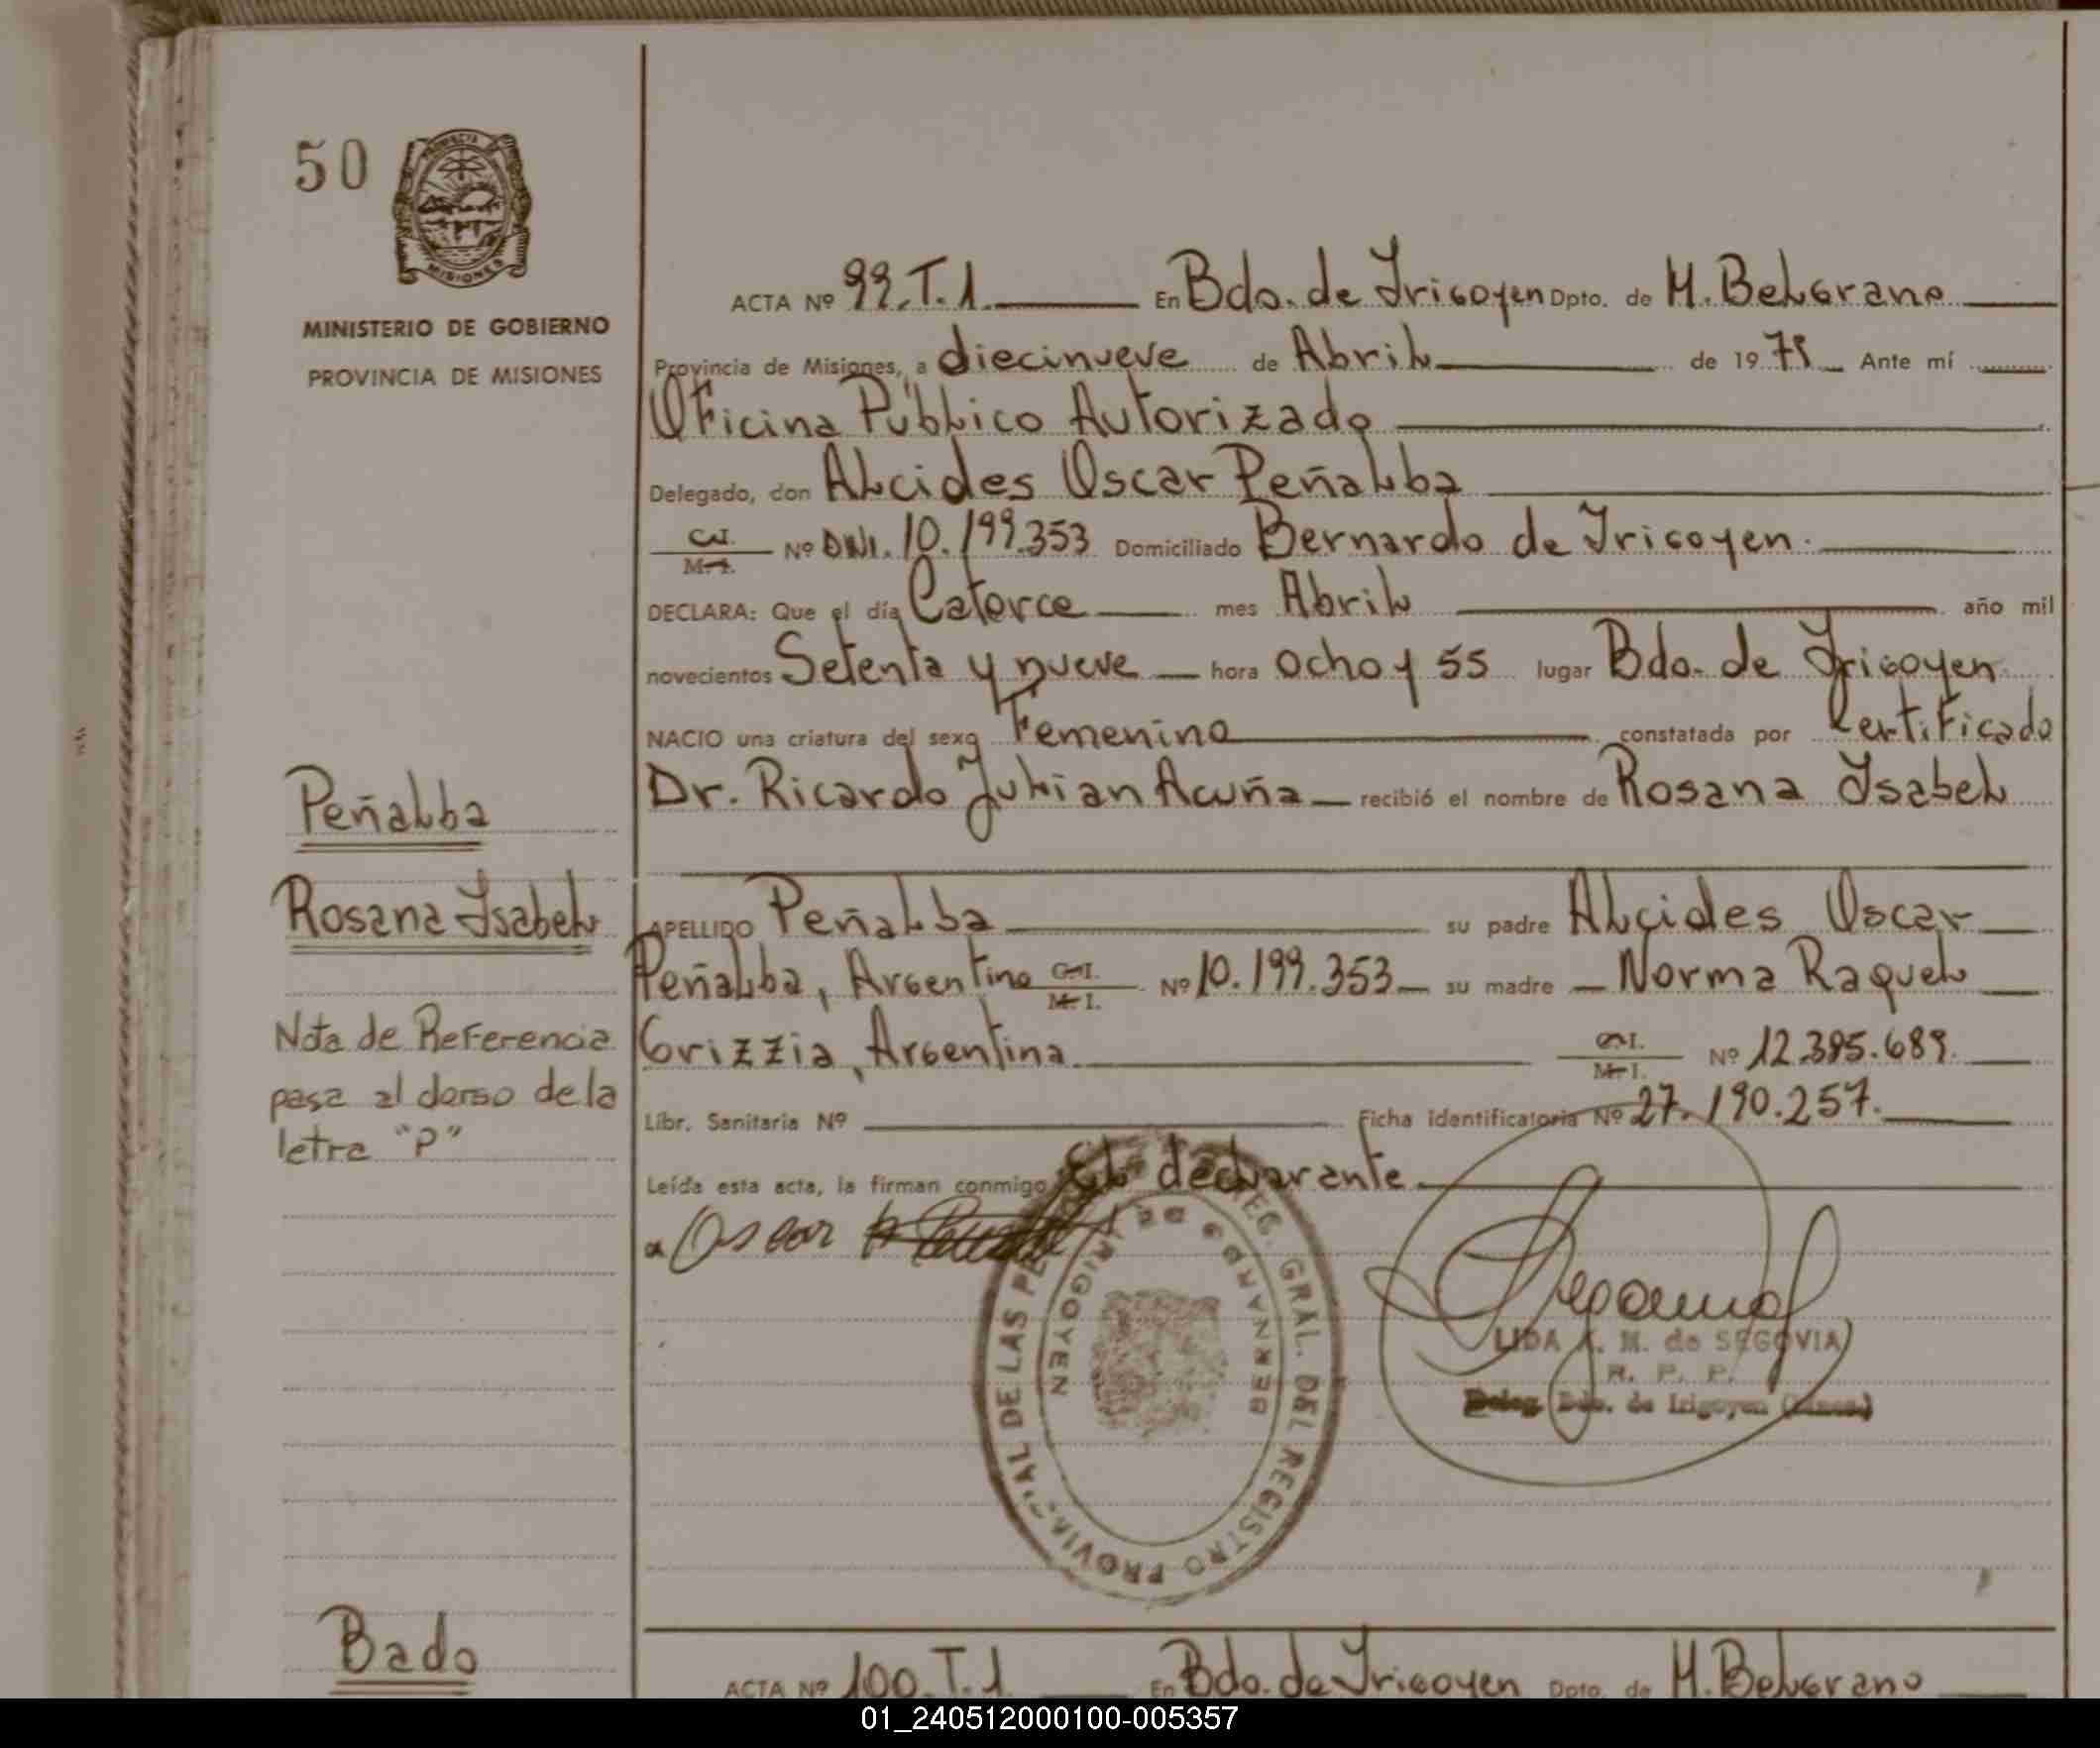 50
PROVINCIA DE
MISIONES
MINISTERIO DE GOBIERNO
PROVINCIA DE MISIONES
ACTA Nº 99.T.1. En Bdo. de Irigoyen Dpto. de M. Belgrano
Provincia de Misiones, a diecinueve de Abril de 1979 Ante mí
Oficina Público Autorizado
Delegado, don Alcides Oscar Peñalba
C.I. M.I. Nº DNI. 10.199.353 Domiciliado Bernardo de Irigoyen.
DECLARA: Que el día Catorce mes Abril año mil
novecientos Setenta y nueve hora ocho y 55 lugar Bdo. de Irigoyen
NACIO una criatura del sexo Femenino constatada por Certificado
Dr. Ricardo Julian Acuña recibió el nombre de Rosana Isabel
APELLIDO Peñalba su padre Alcides Oscar
Peñalba, Argentino C.I. M.I. Nº 10.199.353 su madre Norma Raquel
Grizzia, Argentina C.I. M.I. Nº 12.395.689.
Libr. Sanitaria Nº Ficha identificatoria Nº 27.190.257.
Leída esta acta, la firman conmigo El declarante
Oscar
Peñalba
Rosana Isabel
Nota de Referencia
pasa al dorso de la
letra "P"
GRAL. DEL REGISTRO PROVINCIAL DE LAS
BERNARDO DE IRIGOYEN
LIDA A. M. de SEGOVIA
R. P. P.
Deleg. Bdo. de Irigoyen (Mnes.)
Bado
ACTA Nº 100.T.1 En Bdo. de Irigoyen Dpto. de M. Belgrano
01_240512000100-005357